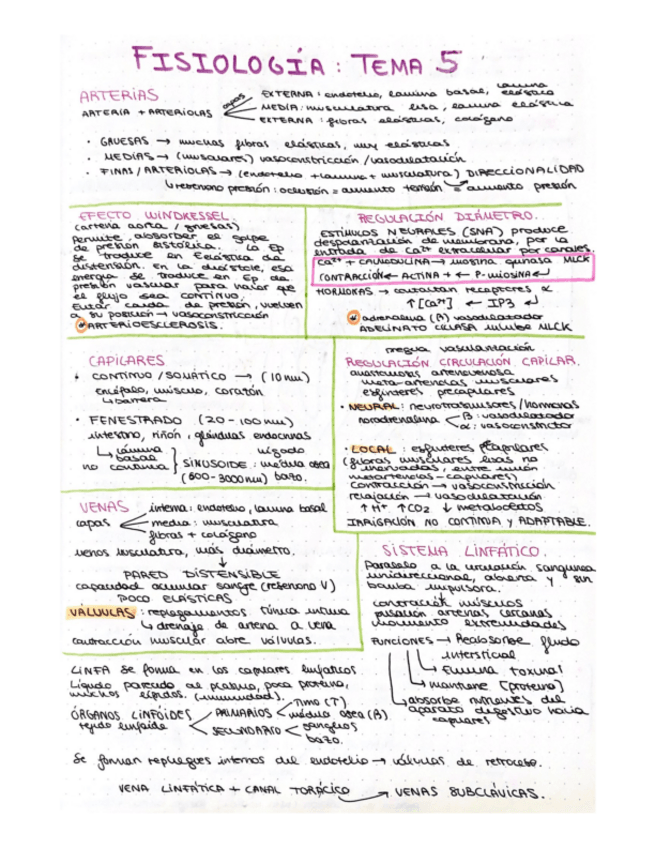 FISIOLOGÍA: TEMA 5
ARTERIAS
ARTERIA + ARTERIOLAS
capas
EXTERNA: endotelio, lamina basal, lamina elástica
MEDIA: musculatura lisa, lamina elástica
EXTERNA: fibras elásticas, colágeno
· GRUESAS → muchas fibras elásticas, muy elásticas
· MEDIAS → (musculares) vasoconstricción / vasodilatación
· FINAS / ARTERIOLAS → (endotelio + lamina + musculatura) DIRECCIONALIDAD
presión: oclusión = aumento tensión → aumento presión
EFECTO WINDKESSEL.
(arteria aorta / gruesas)
Permite absorber el golpe
de presión sistólica. La Ep
se traduce en Eelástica de
distensión. En la diástole, esa
energía se traduce en Ep de
presión vascular para hacer que
el flujo sea continuo.
Evitar caída de presión, vuelven
a su posición → vasoconstricción
ARTERIOESCLEROSIS.
REGULACIÓN DIÁMETRO.
ESTÍMULOS NEURALES (SNA) produce
despolarización de membrana, por la
entrada de Ca2+ extracelular por canales.
Ca2+ + CALMODULINA → miosina quinasa MLCK
CONTRACCIÓN ← ACTINA + ← P-miosina ↵
HORMONAS → contactan receptores α
↑[Ca2+] ← IP3 ↵
adrenalina (β) vasodilatador
ADELINATO CICLASA inhibe MLCK
CAPILARES
· CONTINUO / SOMÁTICO → (10nm)
encéfalo, músculo, corazón
↳ barrera
· FENESTRADO (20-100nm)
intestino, riñón, glándulas endocrinas
↳ lámina basal no continua
SINUSOIDE: hígado
médula ósea
(600-3000nm) bazo.
regula vascularización
REGULACIÓN CIRCULACIÓN CAPILAR.
anastomosis arteriovenosa
meta-arteriolas musculares
esfínteres precapilares
· NEURAL: neurotransmisores / hormonas
noradrenalina
β: vasodilatador
α: vasoconstrictor
· LOCAL: esfínteres precapilares
(fibras musculares lisas no
inervadas, entre unión
metarteriolas-capilares)
contracción → vasoconstricción
relajación → vasodilatación
↑H+ ↑CO2 ↓ metabolitos
IRRIGACIÓN NO CONTINUA Y ADAPTABLE.
VENAS
capas
interna: endotelio, lamina basal
media: musculatura
fibras + colágeno
menos musculatura, más diámetro.
↓
PARED DISTENSIBLE
capacidad acumular sangre (reservorio V)
POCO ELÁSTICAS
VÁLVULAS: replegamientos túnica íntima
↳ drenaje de arteria a vena
contracción muscular abre válvulas.
SISTEMA LINFÁTICO.
Paralelo a la circulación sanguínea
unidireccional, abierta y sin
bomba impulsora.
↳ contracción músculos
pulsación arterias cercanas
movimiento extremidades
FUNCIONES → Reabsorbe fluido
intersticial
↳ Elimina toxinas
↳ mantiene [proteína]
↳ absorbe nutrientes del
aparato digestivo hacia
capilares
LINFA se forma en los capilares linfáticos
Líquido parecido al plasma, poca proteína,
muchos lípidos. (inmunidad).
ÓRGANOS LINFOIDES
tejido linfoide
PRIMARIOS
TIMO (T)
médula ósea (B)
SECUNDARIO
ganglios
bazo.
Se forman repliegues internos del endotelio → válvulas de retroceso.
VENA LINFÁTICA + CANAL TORÁCICO → VENAS SUBCLAVICAS.